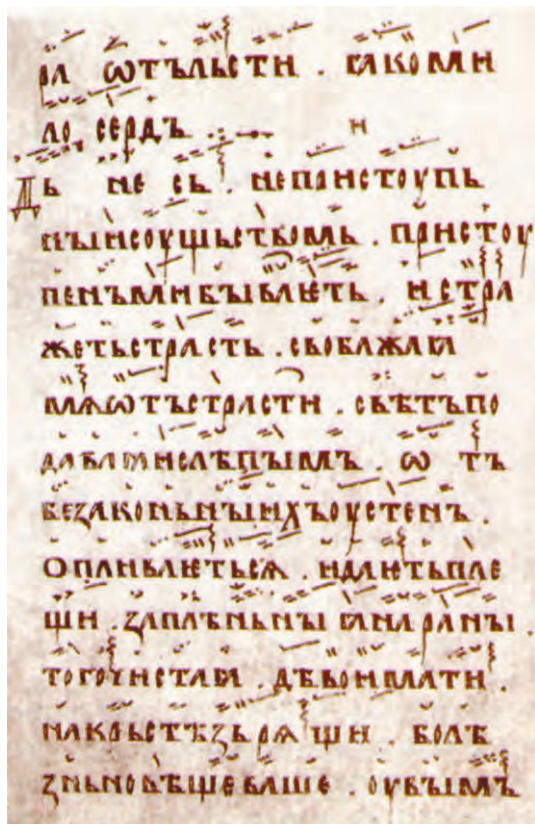 ѡтъльсти . ꙗкоми
лосердъ . н
Дьньсь . непристоупь
ныисоущьствомь . пристоу
пенъмибываѥть . истра
жетьстрасть . свобажаꙗ
мѧѡтъстрасти . свѣтъпо
даваꙗислѣпꙑмъ . ѡтъ
беꙁаконьнꙑихъоустенъ .
опливаѥтьсѧ . идаѥтьпле
щи . ꙁаплѣньнꙑꙗнаранꙑ
тогочистаꙗ . дѣвоимати .
накрьстѣꙁьрѧщи . болѣ
ꙁньновѣщеваше . оувꙑмъ